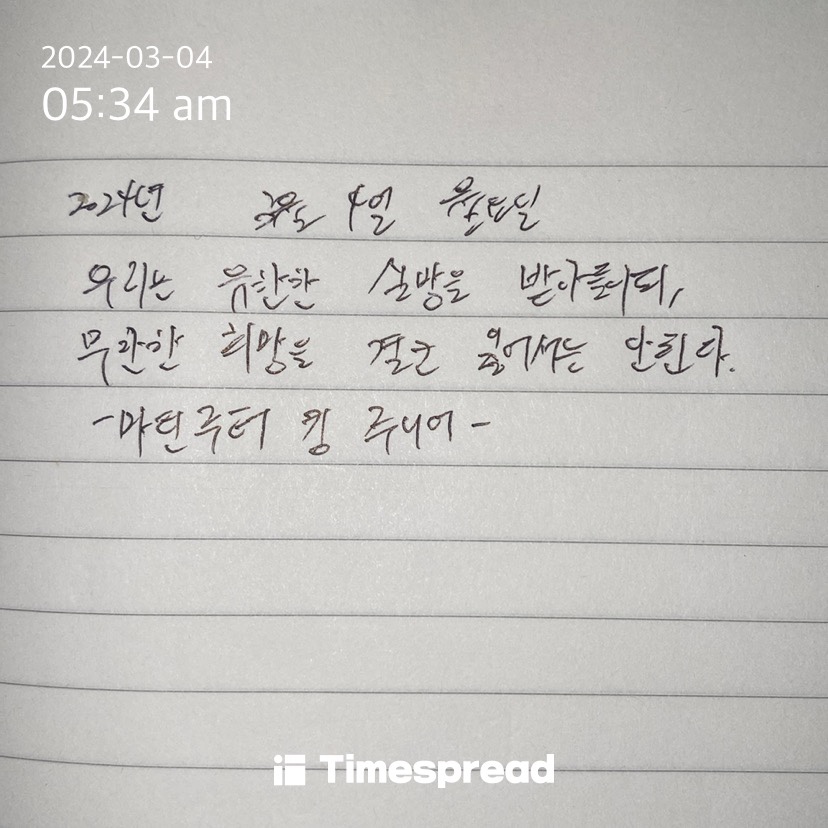 2024-03-04
05:34 am
2024년 3월 4일 월요일
우리는 유한한 실망을 받아들이되,
무한한 희망을 결코 잃어서는 안된다.
-마틴루터 킹 주니어-
Timespread